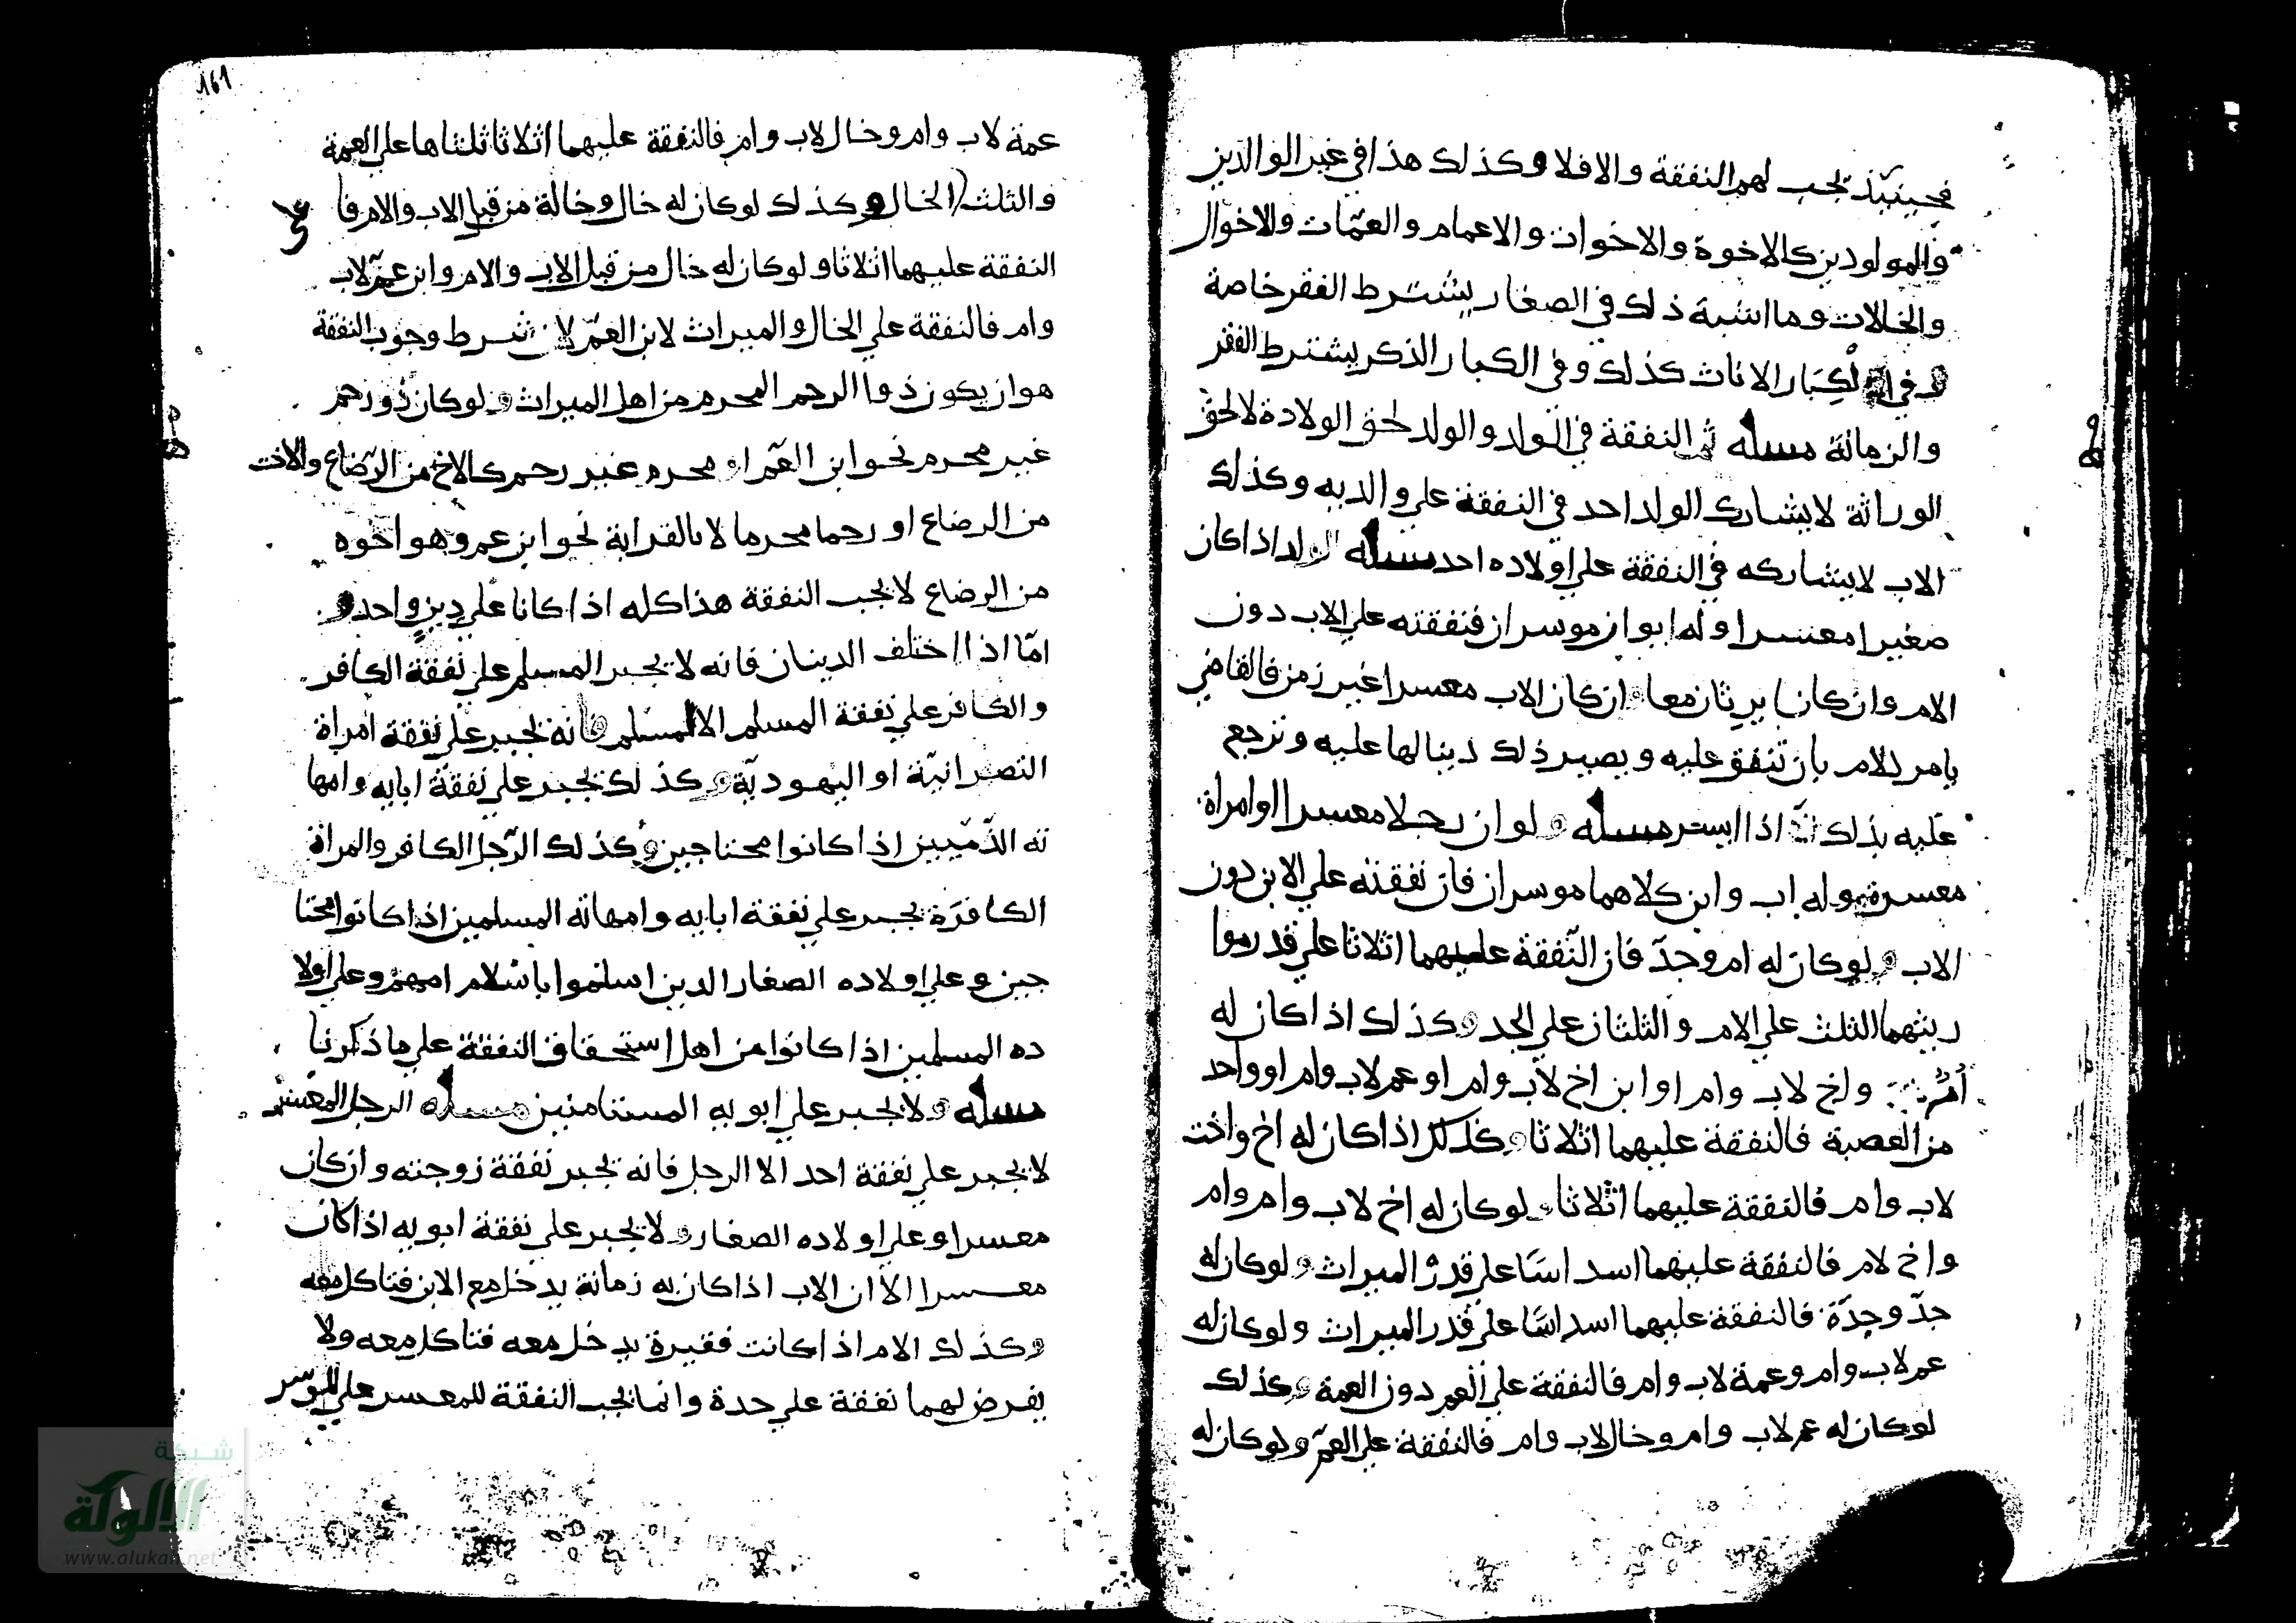 فحينئذ يجب لهم النفقة والا فلا وكذلك هذا في غير الوالدين
والمولودين كالاخوة والاخوات والاعمام والعمّات والاخوال
والخالات وما اشبه ذلك في الصغار يشترط الفقر خاصة
وفي الكبار الاناث كذلك وفي الكبار الذكر يشترط الفقر
والزمانة مسله ثم النفقة في الولد والوالد لحق الولادة لا لحق
الوراثة لا يشارك الولد احد في النفقة علي والديه وكذلك
الاب لا يشاركه في النفقة علي اولاده احد مسله الولد اذا كان
صغيرا معسرا وله ابوان موسران فنفقته علي الاب دون
الام وان كانا يرثان معا وان كان الاب معسرا غير زمن فالقاضي
يامر للام بان تنفق عليه ويصير ذلك دينا لها عليه وترجع
عليه بذلك اذا ايسر مسله ولو ان رجلا معسرا او امراة
معسرة وله اب وابن كلاهما موسران فان نفقته علي الابن دون
الاب ولو كان له ام وجدّ فان النّفقة عليهما اثلاثا علي قدر موا
ريثهما الثلث علي الام والثلثان علي الجد وكذلك اذا كان له
امّ واخ لاب وام او ابن اخ لاب وام او عم لاب وام او واحد
من العصبة فالنفقة عليهما اثلاثا وكذلك اذا كان له اخ واخت
لاب وام فالنفقة عليهما اثلاثا ولو كان له اخ لاب وام وام
واخ لام فالنفقة عليهما اسداسا علي قدر الميراث ولو كان له
جدّ وجدّة فالنفقة عليهما اسداسا علي قدر الميراث ولو كان له
عم لاب وام وعمة لاب وام فالنفقة علي العم دون العمة وكذلك
لو كان له عم لاب وام وخال لاب وام فالنفقة علي العمّ ولو كان له
١٦١
عمة لاب وام وخال لاب وام فالنفقة عليهما اثلاثا ثلثاها علي العمة
والثلث الخال وكذلك لو كان له خال وخالة من قبل الاب والام فا
النفقة عليهما اثلاثا ولو كان له خال من قبل الاب والام وابن عمّ لاب
وام فالنفقة علي الخال والميراث لابن العمّ لان شرط وجوب النفقة
هو ان يكون ذوا الرحم المحرم من اهل الميراث ولو كان ذو رحم
غير محرم نحو ابن العمّ او محرم غير رحم كالاخ من الرّضاع والاخت
من الرضاع او رحما محرما لا بالقرابة نحو ابن عم وهو اخوه
من الرضاع لا يجب النفقة هذا كله اذا كانا علي دين واحد و
امّا اذا اختلف الدينان فانه لا يجبر المسلم علي نفقة الكافر
والكافر علي نفقة المسلم الا المسلم فانه يجبر علي نفقة امراة
النصرانيّة او اليهوديّة وكذلك يجبر علي نفقة ابايه وامها
ته الذّميين اذا كانوا محتاجين وكذلك الرّجل الكافر والمراة
الكافرة يجبر علي نفقة ابايه وامهاته المسلمين اذا كانوا محتا
جين وعلي اولاده الصغار الدين اسلموا باسلام امهم وعلي اولا
ده المسلمين اذا كانوا من اهل استحقاق النفقة علي ما ذكرنا
مسله ولا يجبر علي ابويه المستامنين مسله الرجل المعسر
لا يجبر علي نفقة احد الا الرجل فانه يجبر نفقة زوجته وان كان
معسرا وعلي اولاده الصغار ولا يجبر علي نفقة ابويه اذا كان
معسرا الا ان الاب اذا كان به زمانة يدخل مع الابن فتاكل معه
وكذلك الام اذا كانت فقيرة يدخل معه فتاكل معه ولا
يفرض لهما نفقة علي حدة وانما يجب النفقة للمعسر علي الموسر
شبكة
الألوكة
www.alukah.net